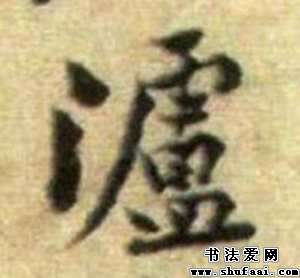 瀘
书法爱网
www.shufaai.com